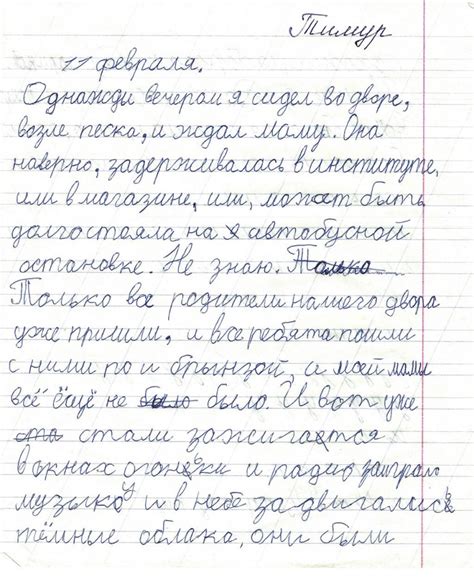 Тимур
11 февраля.
Однажди вечерам я сидел во дворе,
возле песка, и ждал маму. Она
наверно, задерживалась в институте,
или в магазине, или, может быть
долго стаяла на автобусной
остановке. Не знаю. Только
Только все родители нашего двора
уже пришли, и все ребята пошли
с ними по и брынзой, а моей мамы
всё ещё не было было. И вот уже
ста стали зажигается
в окнах огонёки и радио заиграло
музыку и в небе задвигались
тёмные облака, они были